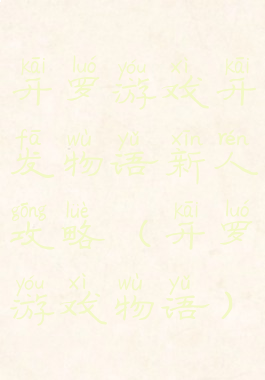 kāi luó yóu xì kāi
开罗游戏开
fā wù yǔ xīn rén
发物语新人
gōng lüè kāi luó
攻略（开罗
yóu xì wù yǔ
游戏物语）